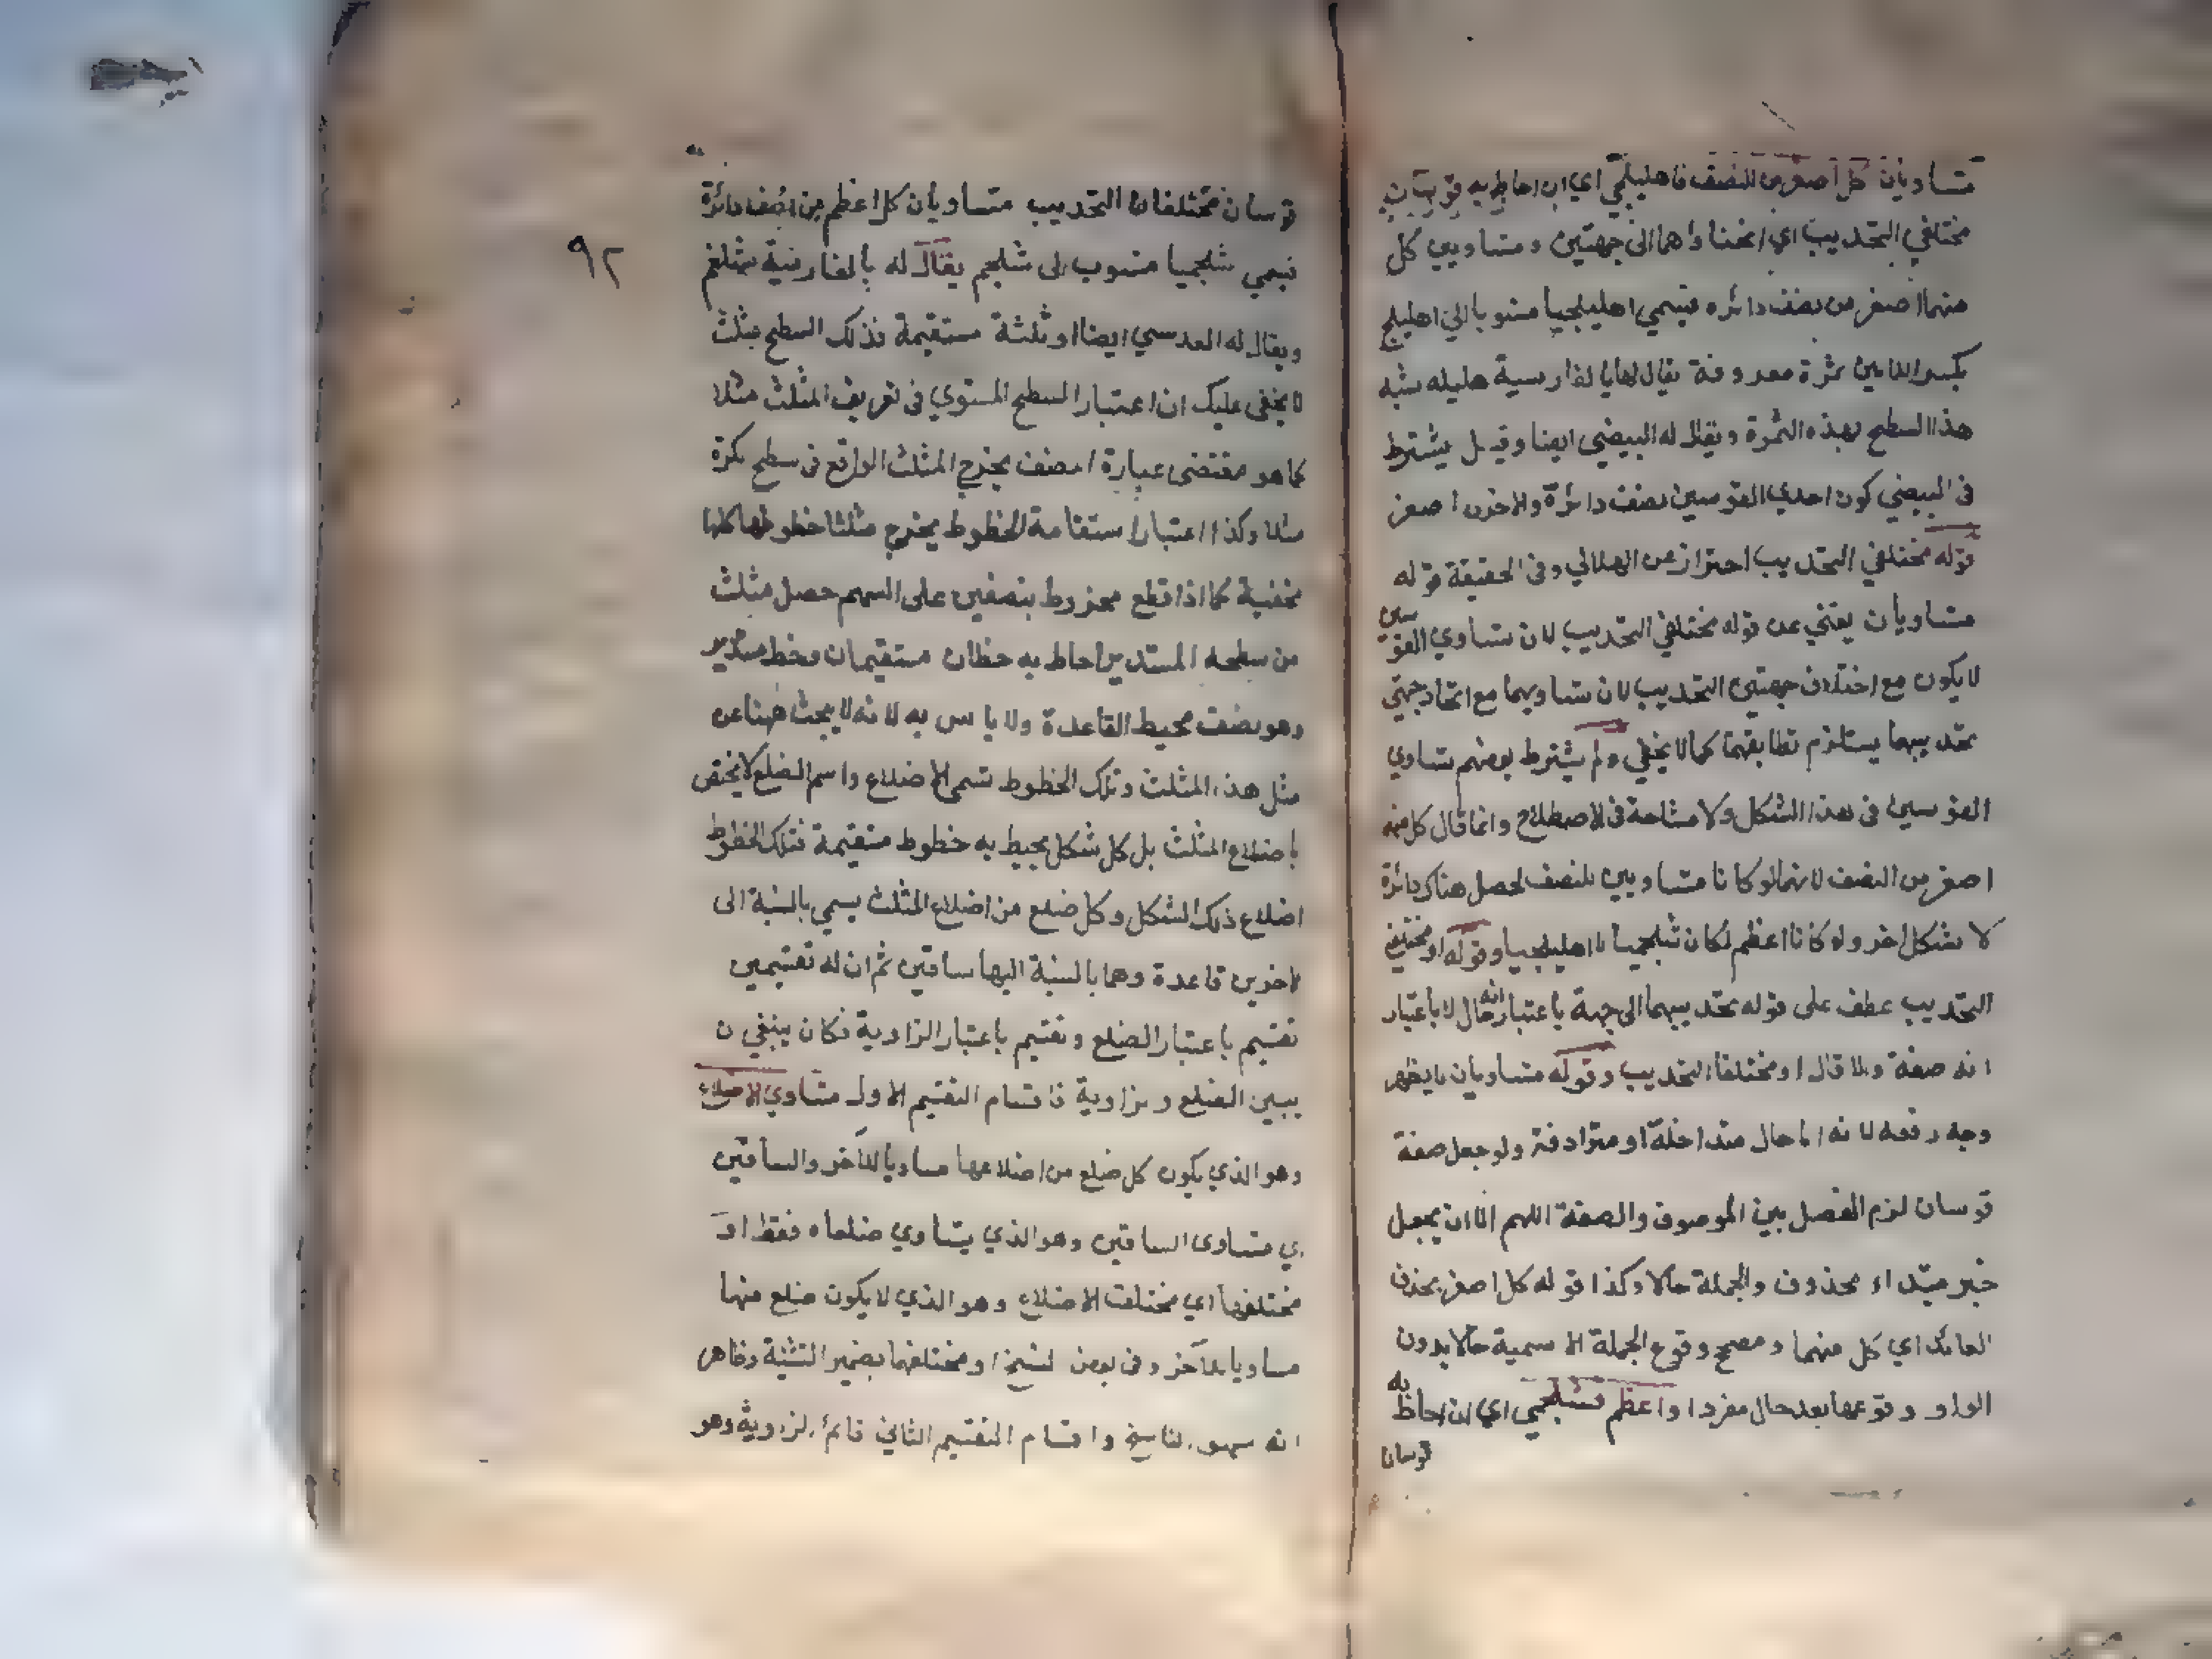 متساويان كل اصغر من النصف فاهليلجي اي ان احاط به قوسان
مختلفي التحديب اي انحناؤاهما الى جهتين ومتساويي كل
منهما اصغر من نصف دائره فيسمى اهليلجيا منسوبا الى اهليلج
بكسر اللامين ثمرة معروفة يقال لها بالفارسية هليله شبه
هذا السطح بهذه الثمرة ويقال له البيضي ايضا وقيل يشترط
في البيضي كون احدي القوسين نصف دائرة والاخرى اصغر
قوله مختلفي التحديب احتراز عن الهلالي وفي الحقيقة قوله
متساويان يغني عن قوله مختلفي التحديب لان تساوي القوسين
لا يكون مع اختلاف جهتين التحديب لان تساويهما مع اتحاد جهتي
تحديبهما يستلزم تطابقهما كما لا يخفى ولم يشترط بعضهم تساوي
القوسين في هذا الشكل ولا مشاحة في الاصطلاح وانما قال كل منهما
اصغر من النصف لانهما لو كانا متساويين للنصف لحصل هناك دائرة
لا شكل اخر ولو كانا اعظم لكان شلجميا لا اهليلجيا وقوله او مختلفي
التحديب عطف على قوله تحديبهما الى جهة باعتبار انه حال لا باعتبار
انه صفة والا قال او مختلفا التحديب وقوله متساويان لا يظهر
وجه رفعه لانه اما حال متداخلة او مترادفة ولو جعل صفة
قوسان لزم الفصل بين الموصوف والصفة اللهم الا ان يجعل
خبر مبتداء محذوف والجملة حالا وكذا قوله كل اصغر بحذف
العائد اي كل منهما ومصحح وقوع الجملة الاسمية حالا بدون
الواو وقوعها بعد حال مفرد او اعظم فشلجمي اي ان احاط به
قوسان
قوسان مختلفان التحديب متساويان كل اعظم من نصف دائرة
فيسمي شلجميا منسوب الى شلجم يقال له بالفارسية شلغم
ويقال له العدسي ايضا او ثلثة مستقيمة فذلك السطح مثلث
لا يخفى عليك ان اعتبار السطح المستوي في تعريف المثلث مثلا
كما هو مقتضى عبارة المصنف يخرج المثلث الواقع في سطح كرة
مثلا وكذا اعتبار استقامة الخطوط يخرج مثلثا خطوطها كلها
منحنية كما اذا قطع مخروط بنصفين على السهم حصل مثلث
من سطحه المستدير احاط به خطان مستقيمان وخط مستدير
وهو نصف محيط القاعدة ولا باس به لانه لا يبحث ههنا عن
مثل هذا المثلث وتلك الخطوط تسمى الاضلاع واسم الضلع لا يختص
باضلاع المثلث بل كل شكل يحيط به خطوط مستقيمة فتلك الخطوط
اضلاع ذلك الشكل وكل ضلع من اضلاع المثلث يسمي بالنسبة الى
الاخرين قاعدة وهما بالنسبة اليها ساقين ثم ان له تقسيمين
تقسيم باعتبار الضلع وتقسيم باعتبار الزاوية فكان ينبغي ان
يبين الضلع والزاوية فاقسام التقسيم الاول متساوي الاضلاع
وهو الذي يكون كل ضلع من اضلاعها مساويا للآخر والساقين
اي متساوى الساقين وهو الذي يتساوي ضلعاه فقط او
مختلفها اي مختلف الاضلاع وهو الذي لا يكون ضلع منها
مساويا للآخر وفي بعض النسخ او مختلفهما بضمير التثنية وظاهر
انه سهو الناسخ واقسام التقسيم الثاني قائم الزاوية وهو
٩٢